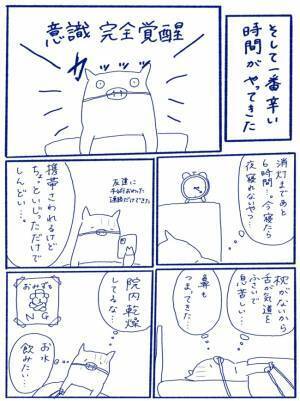 そして一番辛い
時間が
やってきた
意識 完全覚醒
カッッッ
消灯まであと
6時間…。今寝たら
夜寝れないやつ…
友達に
連絡だけできた
携帯さわれるけど
ちょっといじっただけで
しんどい…。
枕がないから
舌が気道を
ふさいで
息苦しい…
鼻も
つまってきた…
院内乾燥
してるな…
お水
飲みたい…
おみず
NG